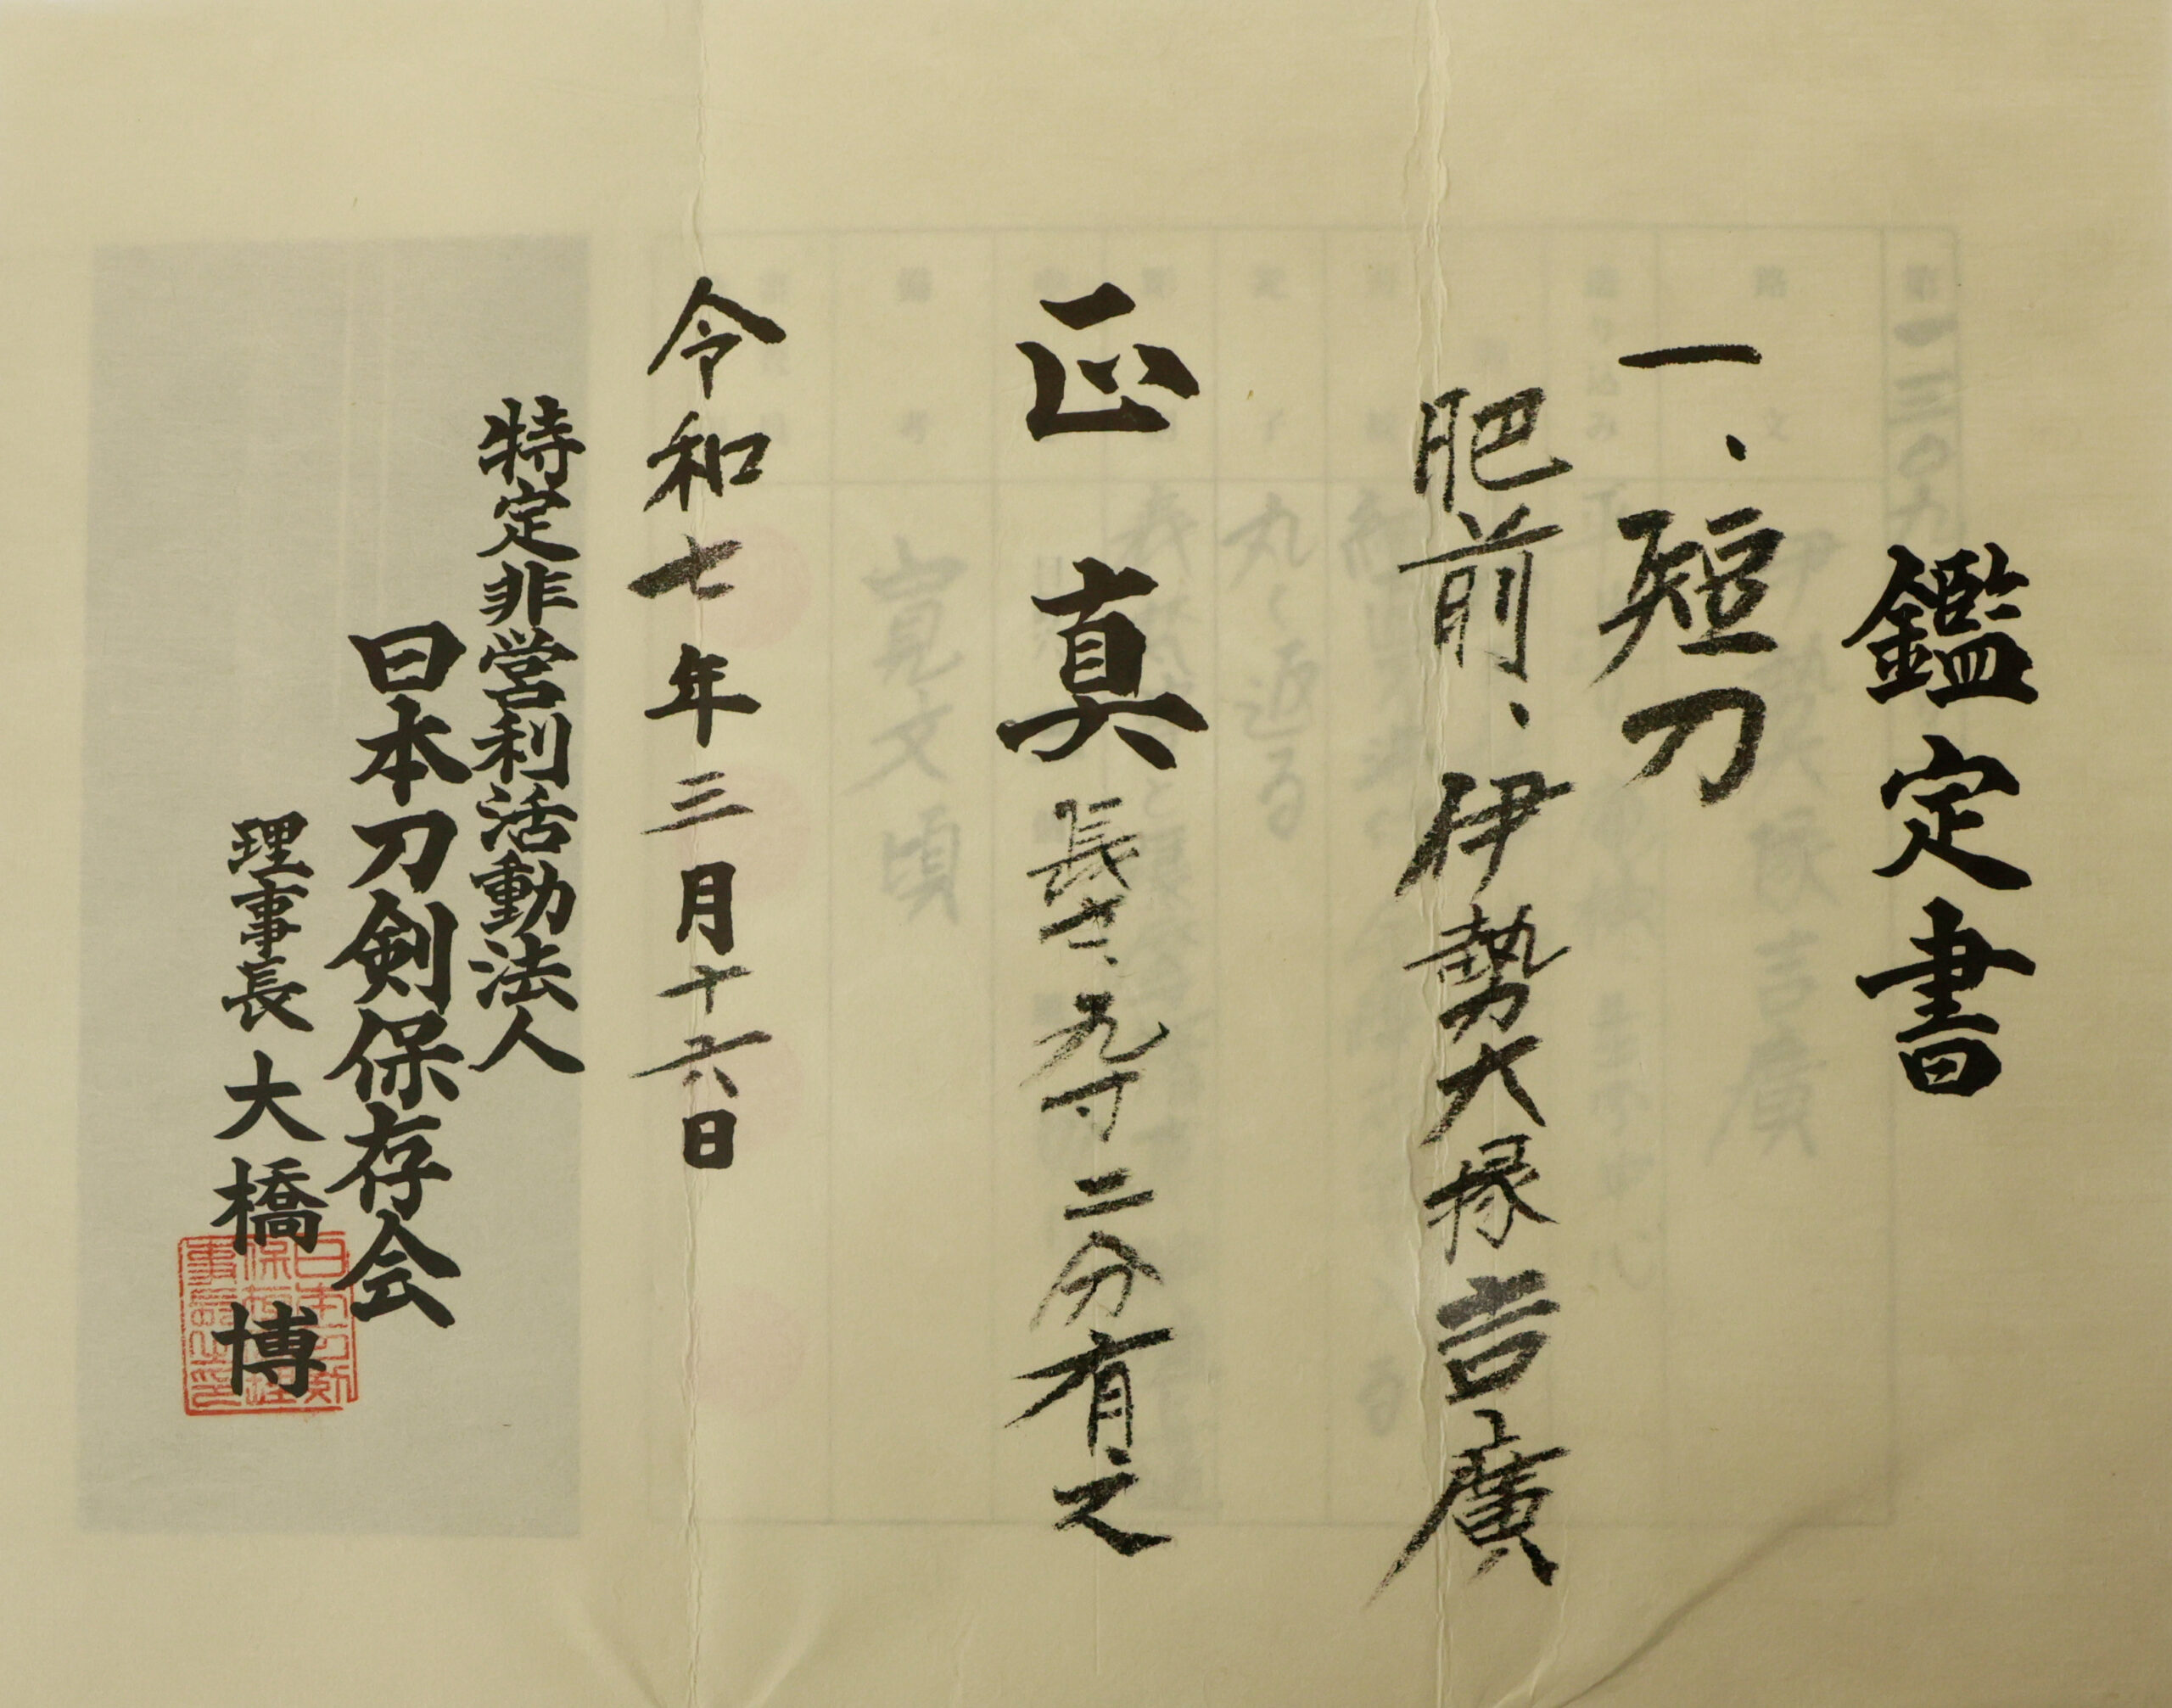 鑑定書
一、短刀
肥前、伊勢大掾吉廣
正真 長さ、九寸二分有之
令和七年三月十六日
特定非営利活動法人
日本刀剣保存会
理事長 大橋 博